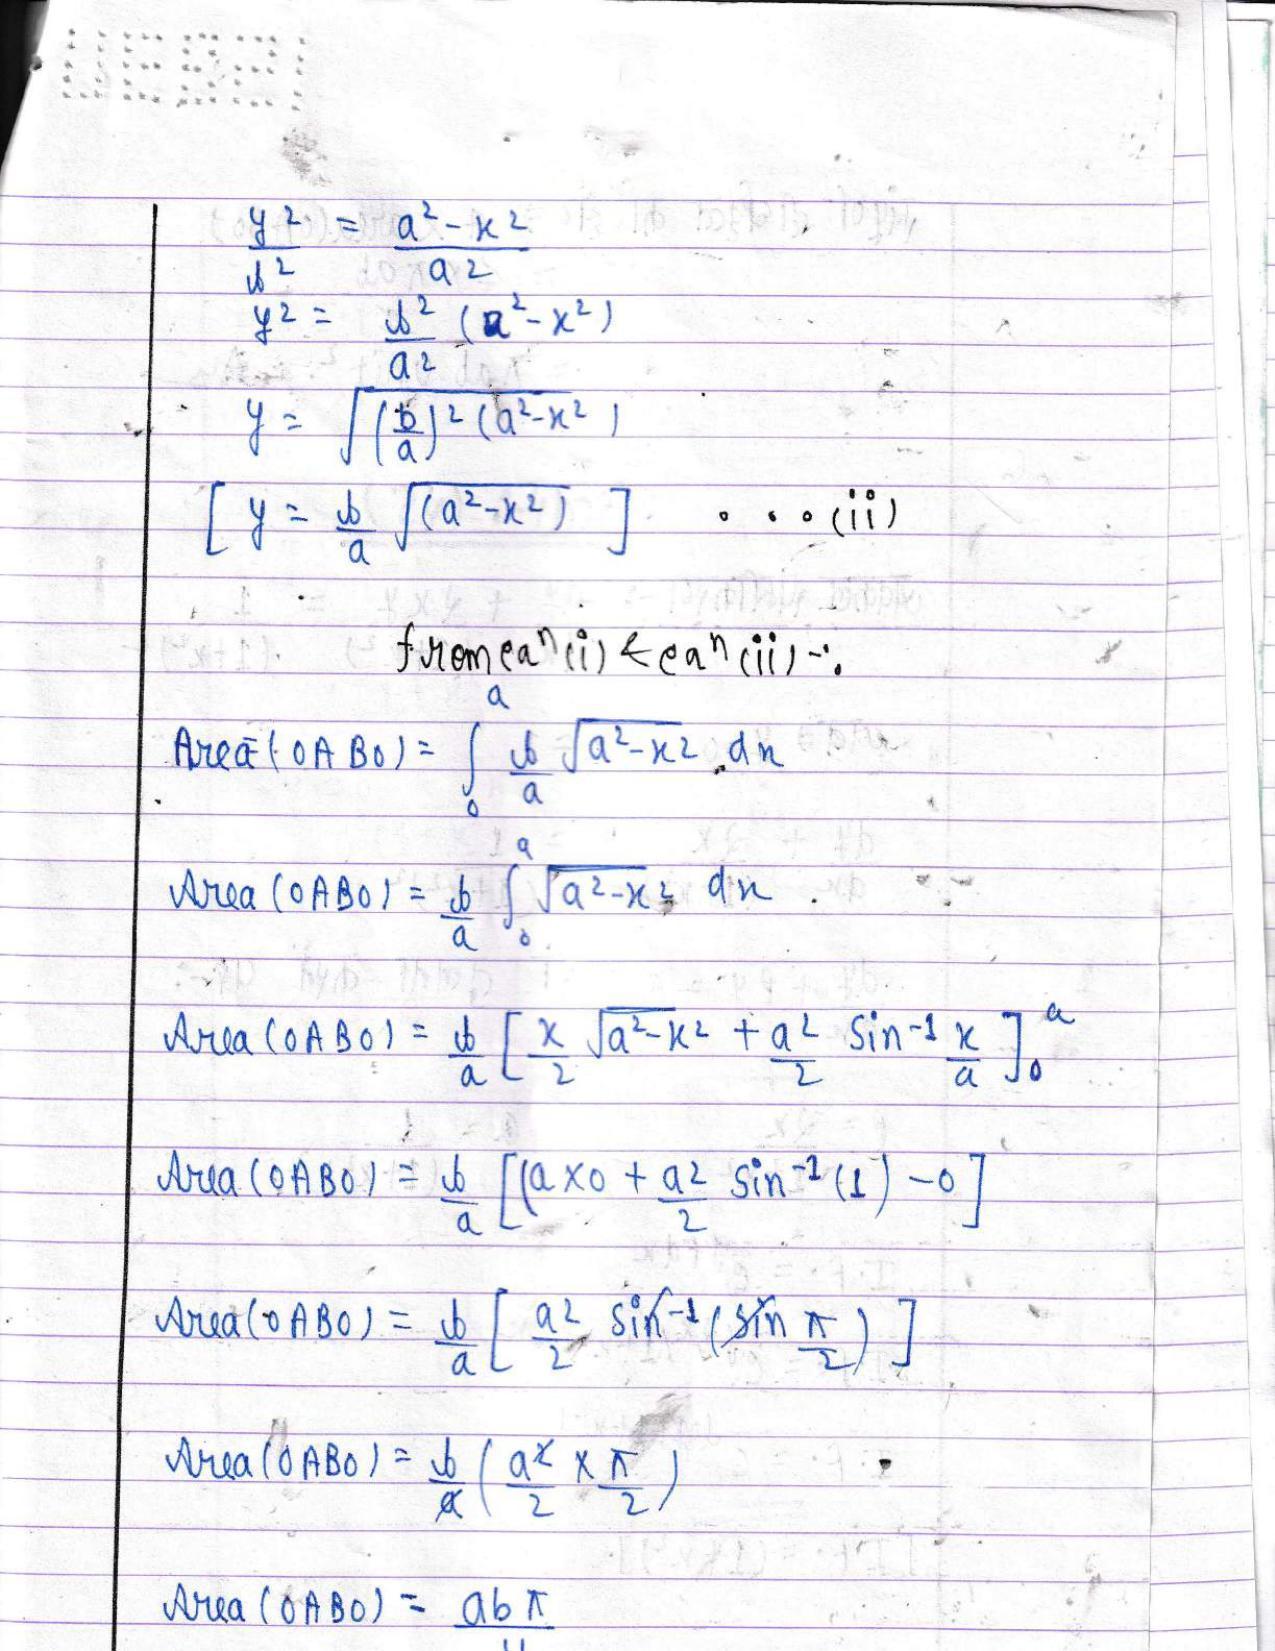 y²/b² = a²-x²/a²
y² = b²/a² (a²-x²)
y = √(b/a)² (a²-x²)
[ y = b/a √(a²-x²) ] ...(ii)
from eqⁿ(i) & eqⁿ(ii) -:
Area (OABO) = ∫₀ᵃ b/a √a²-x² dx
Area (OABO) = b/a ∫₀ᵃ √a²-x² dx
Area (OABO) = b/a [ x/2 √a²-x² + a²/2 Sin⁻¹ x/a ]₀ᵃ
Area (OABO) = b/a [(a×0 + a²/2 Sin⁻¹(1) -0]
Area (OABO) = b/a [ a²/2 Sin⁻¹ (Sin π/2) ]
Area (OABO) = b/a ( a²/2 × π/2 )
Area (OABO) = abπ/4